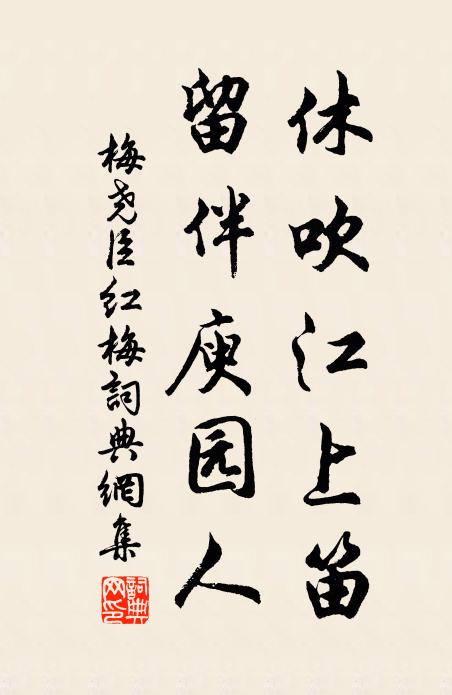 休吹江上笛
留伴庾园人
梅尧臣红梅詞典網集
詞典网印